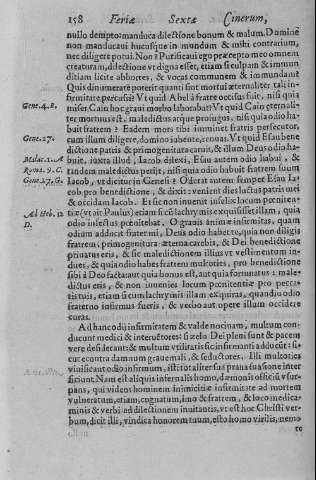 158 Feriæ Sextæ Cinerum,
nullo dempto: manduca dilectione bonum & malum. Domine
non manducaui hucusque in mundum & mihi contrarium,
nec diligere potui. Non? Purificaui ego præcepto meo omnem
creaturam, dilectione vt digna esset, etiam si sculptam & immun
ditiam licite abhorres, & vocas communem & immundam?
Quis dinumerare poterit quanti sint mortui æternaliter tali in-
Gene. 4. B. firmitate percussi? Vt quid Abel à fratre occisus fuit, nisi quia
miser Cain hoc graui morbo laborabat? Vt quid Cain eternali-
ter mortuus est, maledictus atque profugus, nisi quia odio ha-
bait fratrem? Eadem mors tibi imminet fratris persecutor,
Gene. 27. cum illum diligere, domino iubente, renuas. Vt quid Esau bene
dictione patris & primogenitura caruit, & illum Deus odio ha-
Malac. 1. A buit, iuxta illud, Iacob dilexi, Esau autem odio habui, &
Roma. 9. C. tandem maledictus perijt, nisi quia odio habuit fratrem suum
Gene. 27. G. Iacob, vt dicitur in Genesi? Oderat autem semper Esau Ia
cob pro benedictione, & dixit: venient dies luctus patris mei
& occidam Iacob. Et sic non inuenit infelix locum pœniten-
Ad Heb. 12 tiæ (vt ait Paulus) etiam si cũ lachrymis exquisisset illam, quia
D. odio infectus pœnitebat. O grauis animæ infirmitas, quam
odium adducit fraternũ. Deus odio habet te, quia non diligis
fratrem, primogenitura æterna carebis, & Dei benedictione
priuatus eris, & sic maledictionem illius vt vestimentum in-
dues, & quia odio habes fratrem multoties, pro benedictione
sibi à Deo facta: aut quia bonus est, aut quia fortunatus: male-
dictus eris, & non inuenies locum pœnitentiæ pro pecca-
tis tuis, etiam si cum lachrymis illam exquiras, quandiu odio
fraterno infirmus fueris, & verbo aut opere illum occidere
curas.
Ad hanc odij infirmitatem & valde nocinam, multum con-
ducunt medici & interfectores suæ se Dei pleni sunt & pacem
vere desiderant: & multum vtilitatis sic infirmanti adducũt: si-
cut econtra damnum graue mali, & seductores. Illi multoties
viuificant odio infirmum, isti totaliter sua praua suasione inter
ficiunt. Nam est aliquis infernalis homo, dæmonis officiũ vsur-
pans, qui videns hominem inimicitiæ infirmitate ad mortem
vulneratum, etiam, cognatum, imo & fratrem, & loco medica-
minis & verbi ad dilectionem inuitantis, vt est hoc Christi ver-
bum, dicit illi, vindica honorem tuum, esto homo virilis, nemo
te